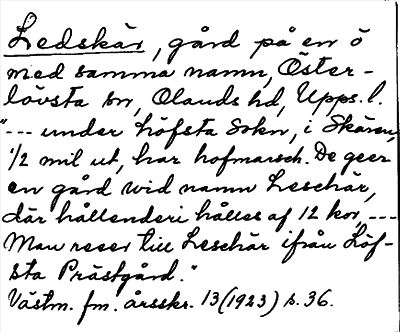 Ledskär, gård på en ö
med samma namn, Öster-
lövsta sn, Olands hd, Upps. l.
"--- under Löfsta Sokn, i Skären,
1/2 mil ut, har hofmarsch. De geer
en gård wid namn Leschär,
där hållenderi hålles af 12 kor, ---
Man reser till Leschär ifrån Löf-
sta Prästgård."
Västm. fm. årsskr. 13 (1923) s. 36.